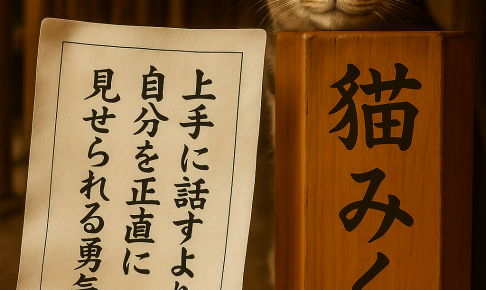 上手に話すより
自分を正直に
見せられる勇気
猫みく